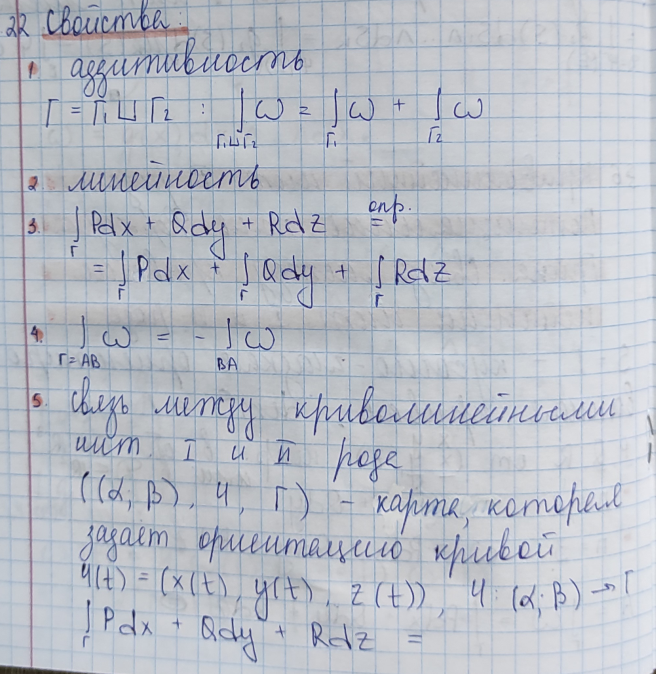 22 Свойства:
1. аддитивность
Γ = Γ₁ ⊔ Γ₂ : ∫_{Γ₁⊔Γ₂} ω = ∫_{Γ₁} ω + ∫_{Γ₂} ω
2. линейность
3. ∫_Γ Pdx + Qdy + Rdz опр. =
= ∫_Γ Pdx + ∫_Γ Qdy + ∫_Γ Rdz
4. ∫_{Γ=AB} ω = - ∫_{BA} ω
5. связь между криволинейными
инт. I и II рода
((α; β), φ, Γ) - карта, которая
задает ориентацию кривой
φ(t) = (x(t), y(t), z(t)), φ: (α; β) → Γ
∫_Γ Pdx + Qdy + Rdz =